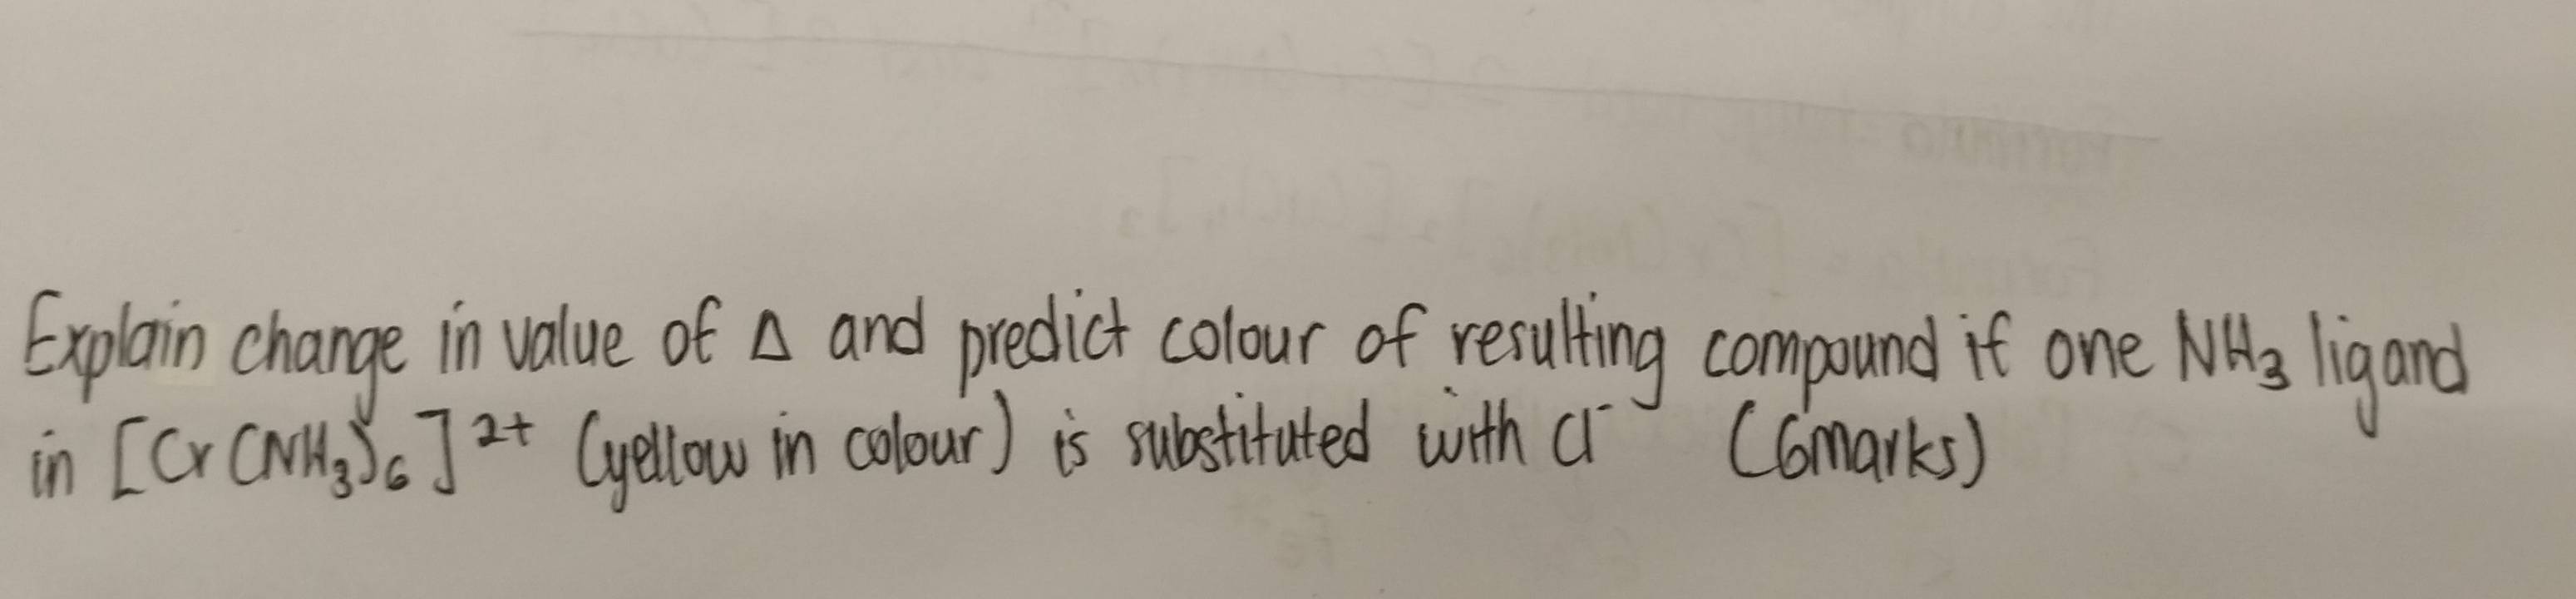 Explain change in value of Δ and predict colour of resulting compound if one NH₃ ligand
in [Cr(NH₃)₆]²⁺ (yellow in colour) is substituted with Cl⁻ (6marks)